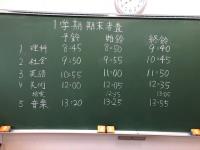 1学期 期末考査
予鈴 始鈴 終鈴
1 理科 8:45 8:50 9:40
2 社会 9:50 9:55 10:45
3 英語 10:55 11:00 11:50
4 12:00 12:05 12:35
12:35 13:05
5 音楽 13:20 13:25 13:55